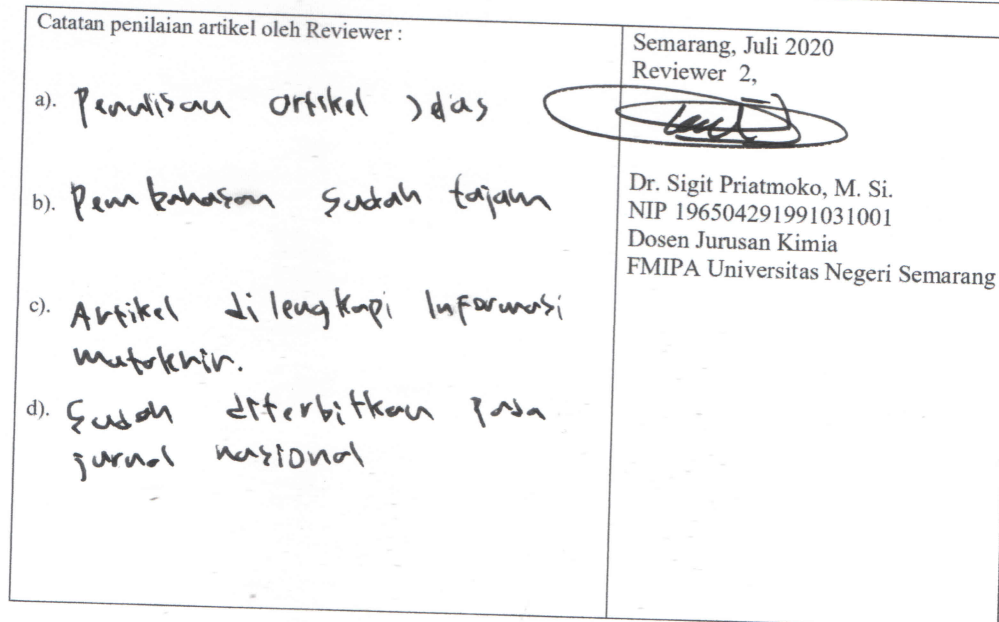 Catatan penilaian artikel oleh Reviewer :
a). Penulisan artikel jelas
b). Pembahasan sudah tajam
c). Artikel dilengkapi Informasi
mutakhir.
d). Sudah diterbitkan pada
jurnal nasional
Semarang, Juli 2020
Reviewer 2,
Dr. Sigit Priatmoko, M. Si.
NIP 196504291991031001
Dosen Jurusan Kimia
FMIPA Universitas Negeri Semarang